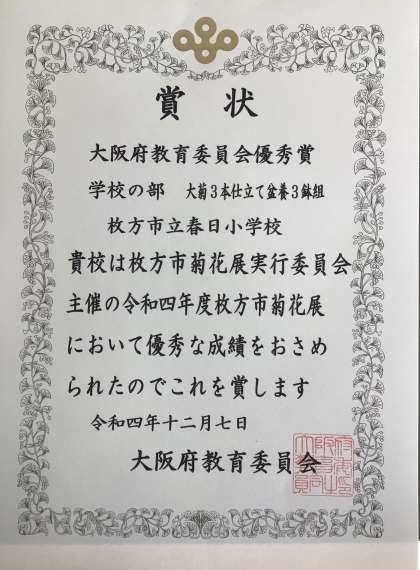 賞状
大阪府教育委員会優秀賞
学校の部 大菊3本仕立て盆養3鉢組
枚方市立春日小学校
貴校は枚方市菊花展実行委員会
主催の令和四年度枚方市菊花展
において優秀な成績をおさめ
られたのでこれを賞します
令和四年十二月七日
大阪府教育委員会